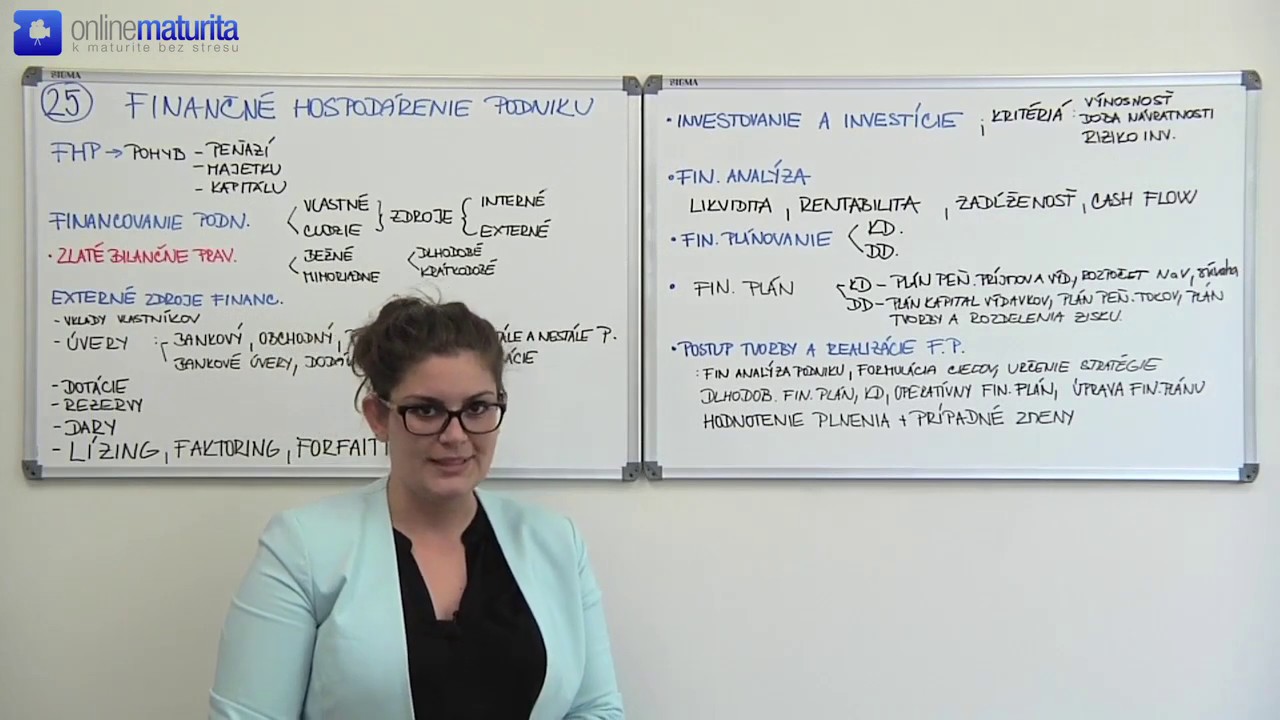 onlinematurita
k maturite bez stresu
SIGMA
25 FINANČNÉ HOSPODÁRENIE PODNIKU
FHP → POHYB - PEŇAZÍ
- MAJETKU
- KAPITÁLU
FINANCOVANIE PODN. < VLASTNÉ CUDZIE } ZDROJE { INTERNÉ EXTERNÉ
• ZLATÉ BILANČNÉ PRAV. < BEŽNÉ MIMORIADNE < DLHODOBÉ KRÁTKODOBÉ
EXTERNÉ ZDROJE FINANC.
- VKLADY VLASTNÍKOV
- ÚVERY : BANKOVÝ, OBCHODNÝ, ÁLE A NESTÁLE P.
BANKOVÉ ÚVERY, DODÁ ÁCIE
- DOTÁCIE
- REZERVY
- DARY
- LÍZING, FAKTORING, FORFAIT
SIGMA
• INVESTOVANIE A INVESTÍCIE ; KRITÉRIÁ : VÝNOSNOSŤ
DOBA NÁVRATNOSTI
RIZIKO INV.
• FIN. ANALÝZA
LIKVIDITA, RENTABILITA, ZADĹŽENOSŤ, CASH FLOW
• FIN. PLÁNOVANIE < KD.
DD.
• FIN. PLÁN KD - PLÁN PEŇ. PRÍJMOV A VÝD, ROZPOČET NaV, súvaha
DD - PLÁN KAPITAL VÝDAVKOV, PLÁN PEŇ. TOKOV, PLÁN
TVORBY A ROZDELENIA ZISKU.
• POSTUP TVORBY A REALIZÁCIE F.P.
: FIN ANALÝZA PODNIKU, FORMULÁCIA CIEĽOV, URČENIE STRATÉGIE
DLHODOB. FIN. PLÁN, KD, OPERATÍVNY FIN. PLÁN, ÚPRAVA FIN. PLÁNU
HODNOTENIE PLNENIA + PRÍPADNÉ ZMENY